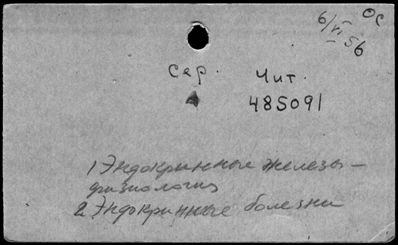 ОС
6/VI 56
Сер. Чит.
485091
1 Эндокринные железы –
физиология
2 Эндокринные болезни